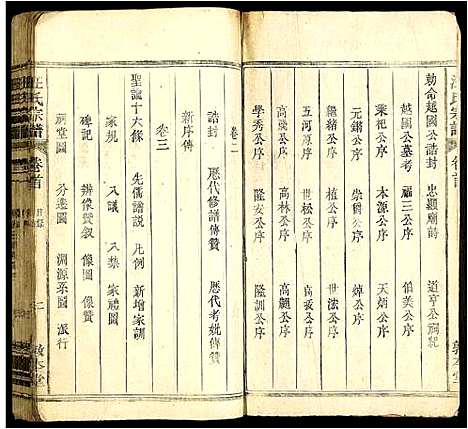 汪氏宗譜 卷首
敦本堂
勅命越國公誥封 忠顯廟詩 道亨公祠記
越國公墓考 福三公序 伯美公序
秉祀公序 本源公序 天炳公序
元鏘公序 崇爵公序 焯公序
繼緒公序 植公序 世法公序
五河源公序 世松公序 高板公序
高幾公序 高林公序 高麒公序
學秀公序 隆安公序 隆訓公序
卷二
誥封 歷代修譜傳贊 歷代考妣傳贊
新序傳
卷三
聖諭十六條 先儒譜說 凡例 新增家訓
家規 八議 八禁 家禮圖
碑記 辨像贊叙 像圖 像贊
祠堂圖 分遷圖 淵源系圖 派行
汪氏宗譜 卷首 目錄 二